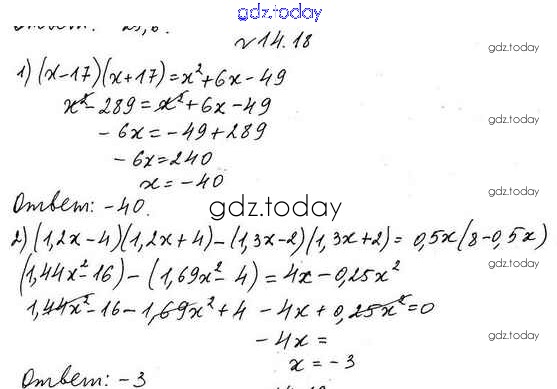 gdz.today
Ответ: 25,6.
№14.18
gdz.today
1) (x-17)(x+17)=x²+6x-49
x²-289=x²+6x-49
-6x=-49+289
gdz.today
-6x=240
x=-40
Ответ: -40.
gdz.today
gdz.today
2) (1,2x-4)(1,2x+4)-(1,3x-2)(1,3x+2)=0,5x(8-0,5x)
(1,44x²-16)-(1,69x²-4)=4x-0,25x²
gdz.today
1,44x²-16-1,69x²+4-4x+0,25x²=0
-4x=
gdz.today
x=-3
Ответ: -3